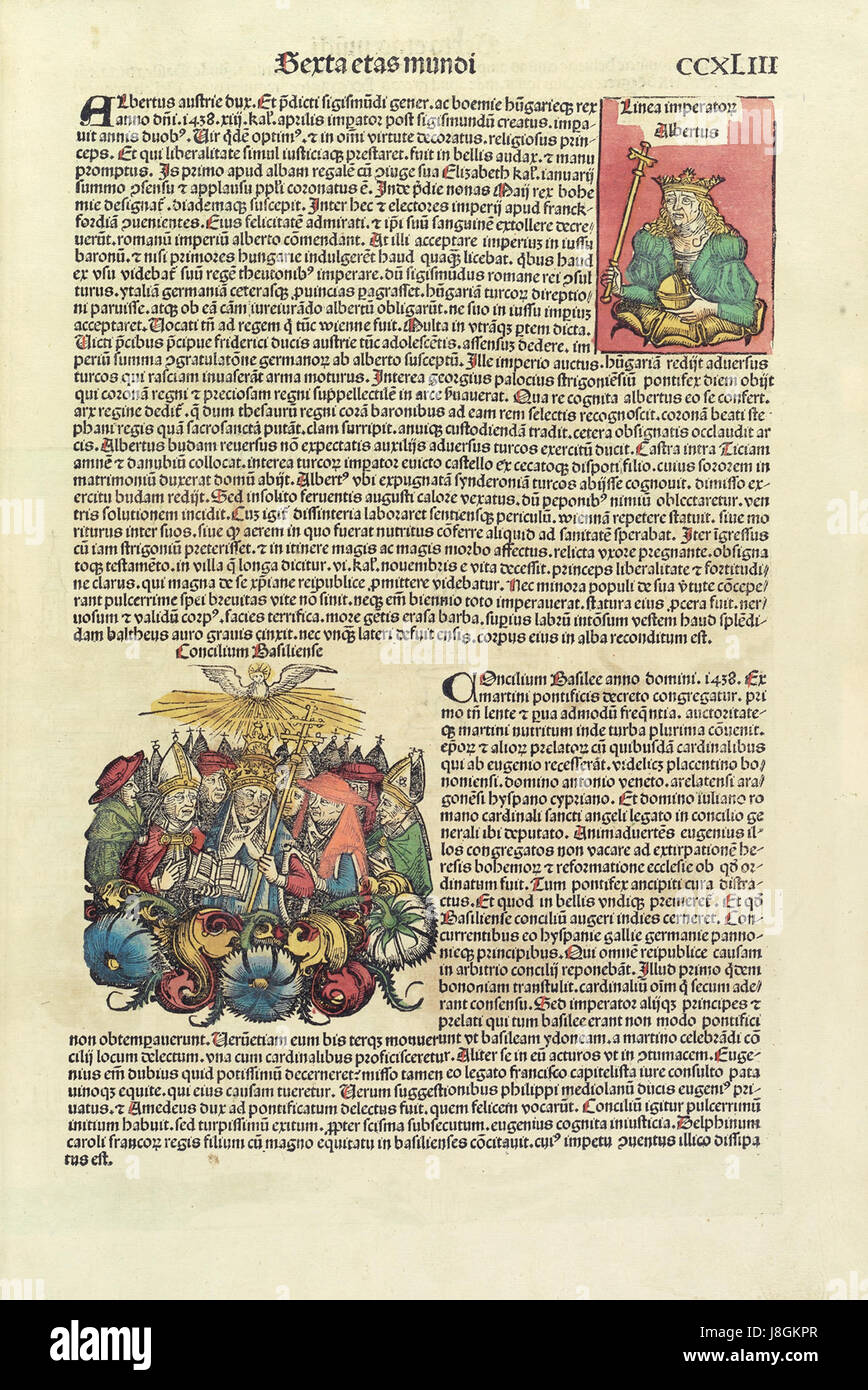 Sexta etas mundi
CCXLIII
Albertus austrie dux. Et p̄dicti sigismūdi gener. ac boemie hūgarieqꝫ rex
anno dn̄i. 1438. xiij. kal̄. aprilis impator post sigismundū creatus. impa⸗
uit annis duobꝰ. Uir qd̄em optimꝰ. ⁊ in om̄i virtute decoratus. religiosus prin⸗
ceps. Et qui liberalitate simul iusticiaqꝫ prestaret. fuit in bellis audax. ⁊ manu
promptus. Is primo apud albam regalē cū ꝯiuge sua Elizabeth kal̄. ianuarij
summo ꝯsensu ⁊ applausu pp̄li coronatus ē. Inde p̄die nonas Maij rex bohe
mie designat᷒. diademaqꝫ suscepit. Inter hec ⁊ electores imperij apud franck⸗
fordiā ꝯuenientes. Eius felicitatē admirati. ⁊ ip̄i suū sanguinē extollere decre⸗
uerūt. romanū imperiū alberto cōmendant. At illi acceptare imperiuꝫ in iussu
baronū. ⁊ nisi primores hungarie indulgerēt haud quaqꝫ licebat. qb̄us haud
ex vsu videbat᷒ suū regē theutonibꝰ imperare. dū sigismūdus romane rei ꝯsul
turus. ytaliā germaniā ceterasqꝫ ꝓuincias ꝑagrasset. hūgariā turcoꝝ direptio⸗
ni paruisse. atqꝫ ob eā cām iureiurādo albertū obligarūt. ne suo in iussu impiuꝫ
acceptaret. Uocati tn̄ ad regem q̄ tūc wienne fuit. Multa in vtrāqꝫ ꝑtem dicta.
Uicti p̄cibus p̄cipue friderici ducis austrie tūc adolescētis. assensuꝫ dedere. im⸗
periū summa ꝯgratulatōne germanoꝝ ab alberto susceptū. Ille imperio auctus. hūgariā redijt aduersus
turcos qui rasciam inuaserāt arma moturus. Interea georgius palocius strigoniēsiū pontifex diem obijt
qui coronam regni ⁊ preciosam regni suppellectilē in arce p̄uauerat. Qua re cognita albertus eo se confert.
arx regine dedit᷒. q̄ dum thesaurū regni corā baronibus ad eam rem selectis recognoscit. coronā beati ste⸗
phani regis quā sacrosanctā putāt. clam surripit. anuiqꝫ custodiendā tradit. cetera obsignatis occlaudit ar
cis. Albertus budam reuersus nō expectatis auxilijs aduersus turcos exercitū ducit. Castra intra Ticiam
amnē ⁊ danubiū collocat. interea turcoꝝ imꝑator euicto castello ex cecatoqꝫ dispoti filio. cuius sororem in
matrimoniū duxerat domū abijt. Albertꝰ vbi expugnatā synderoniā turcos abijsse cognouit. dimisso ex⸗
ercitu budam redijt. Sed insolito feruentis augusti calore vexatus. dū peponibꝰ nimiū oblectaretur. ven
tris solutionem incidit. Cuꝫ igit᷒ dissinteria laboraret sentiensqꝫ periculū. wiennā repetere statuit. siue mo
riturus inter suos. siue qꝛ aerem in quo fuerat nutritus cōferre aliquid ad sanitatē sperabat. Iter īgressus
cū iam strigoniū preterisset. ⁊ in itinere magis ac magis morbo affectus. relicta vxore pregnante. obsigna
toqꝫ testamēto. in villa q̄ longa dicitur. vi. kal̄. nouembris e vita decessit. princeps liberalitate ⁊ fortitudi⸗
ne clarus. qui magna de se xp̄iane reipublice ꝓmittere videbatur. Nec minora populi de sua v̓tute cōcepe⸗
rant pulcerrime spei breuitas vite nō sinit. neqꝫ em̄ biennio toto imperauerat. statura eius ꝓcera fuit. ner⸗
uosum ⁊ validū corpꝰ. facies terrifica. more gētis erasa barba. supius labrū intōsum vestem haud splēdi⸗
dam baltheus auro grauis cinxit. nec vnqꝫ lateri defuit ensis. corpus eius in alba reconditum est.
Linea imperatoꝝ
Albertus
Concilium Basiliense
Concilium Basilee anno domini. 1438. Ex
martini pontificis decreto congregatur. pri
mo tn̄ lente ⁊ ꝑua admodū freq̄ntia. auctoritate⸗
qꝫ martini nutritum inde turba plurima cōuenit.
ep̄oꝝ ⁊ alioꝝ prelatoꝝ cū quibusdā cardinalibus
qui ab eugenio recesserāt. videlicꝫ placentino bo⸗
noniensi. domino antonio veneto. arelatensi ara⸗
gonēsi hyspano cypriano. Et domino iuliano ro
mano cardinali sancti angeli legato in concilio ge
nerali ibi deputato. Animaduertēs eugenius il⸗
los congregatos non vacare ad extirpationē he⸗
resis bohemoꝝ ⁊ reformatione ecclesie ob qd̄ or⸗
dinatum fuit. Tum pontifex ancipiti cura distra⸗
ctus. Et quod in bellis vndiqꝫ premeret᷒. Et qd̄
Basiliense conciliū augeri indies cerneret. Con⸗
currentibus eo hyspanie gallie germanie panno⸗
nieqꝫ principibus. Qui omnē reipublice causam
in arbitrio concilij reponebāt. Illud primo qd̄em
bononiam transtulit. cardinaliū om̄iū q̄ secum ade⸗
rant consensu. Sed imperator alijqꝫ principes ⁊
prelati qui tum basilee erant non modo pontifici
non obtemꝑauerunt. Uerūetiam eum bis terqꝫ monuerunt vt basileam ydoneam. a martino celebrādi cō
cilij locum delectum. vna cum cardinalibus proficisceretur. Aliter se in eū acturos vt in ꝯtumacem. Euge⸗
nius em̄ dubius quid potissimū decerneret. misso tamen eo legato francisco capitelista iure consulto pata
uinoqꝫ equite. qui eius causam tueretur. Uerum suggestionibus philippi mediolanū ducis eugeniꝰ pri⸗
uatus. ⁊ Amedeus dux ad pontificatum delectus fuit. quem felicem vocarūt. Conciliū igitur pulcerrimū
initium habuit. sed turpissimū exitum. ꝓpter scisma subsecutum. eugenius cognita iniusticia. Delphinum
caroli francoꝝ regis filium cū magno equitatu in basilienses cōcitauit. cuiꝰ impetu ꝯuentus illico dissipa
tus est.
alamy
Image ID: J8GKPR
www.alamy.com